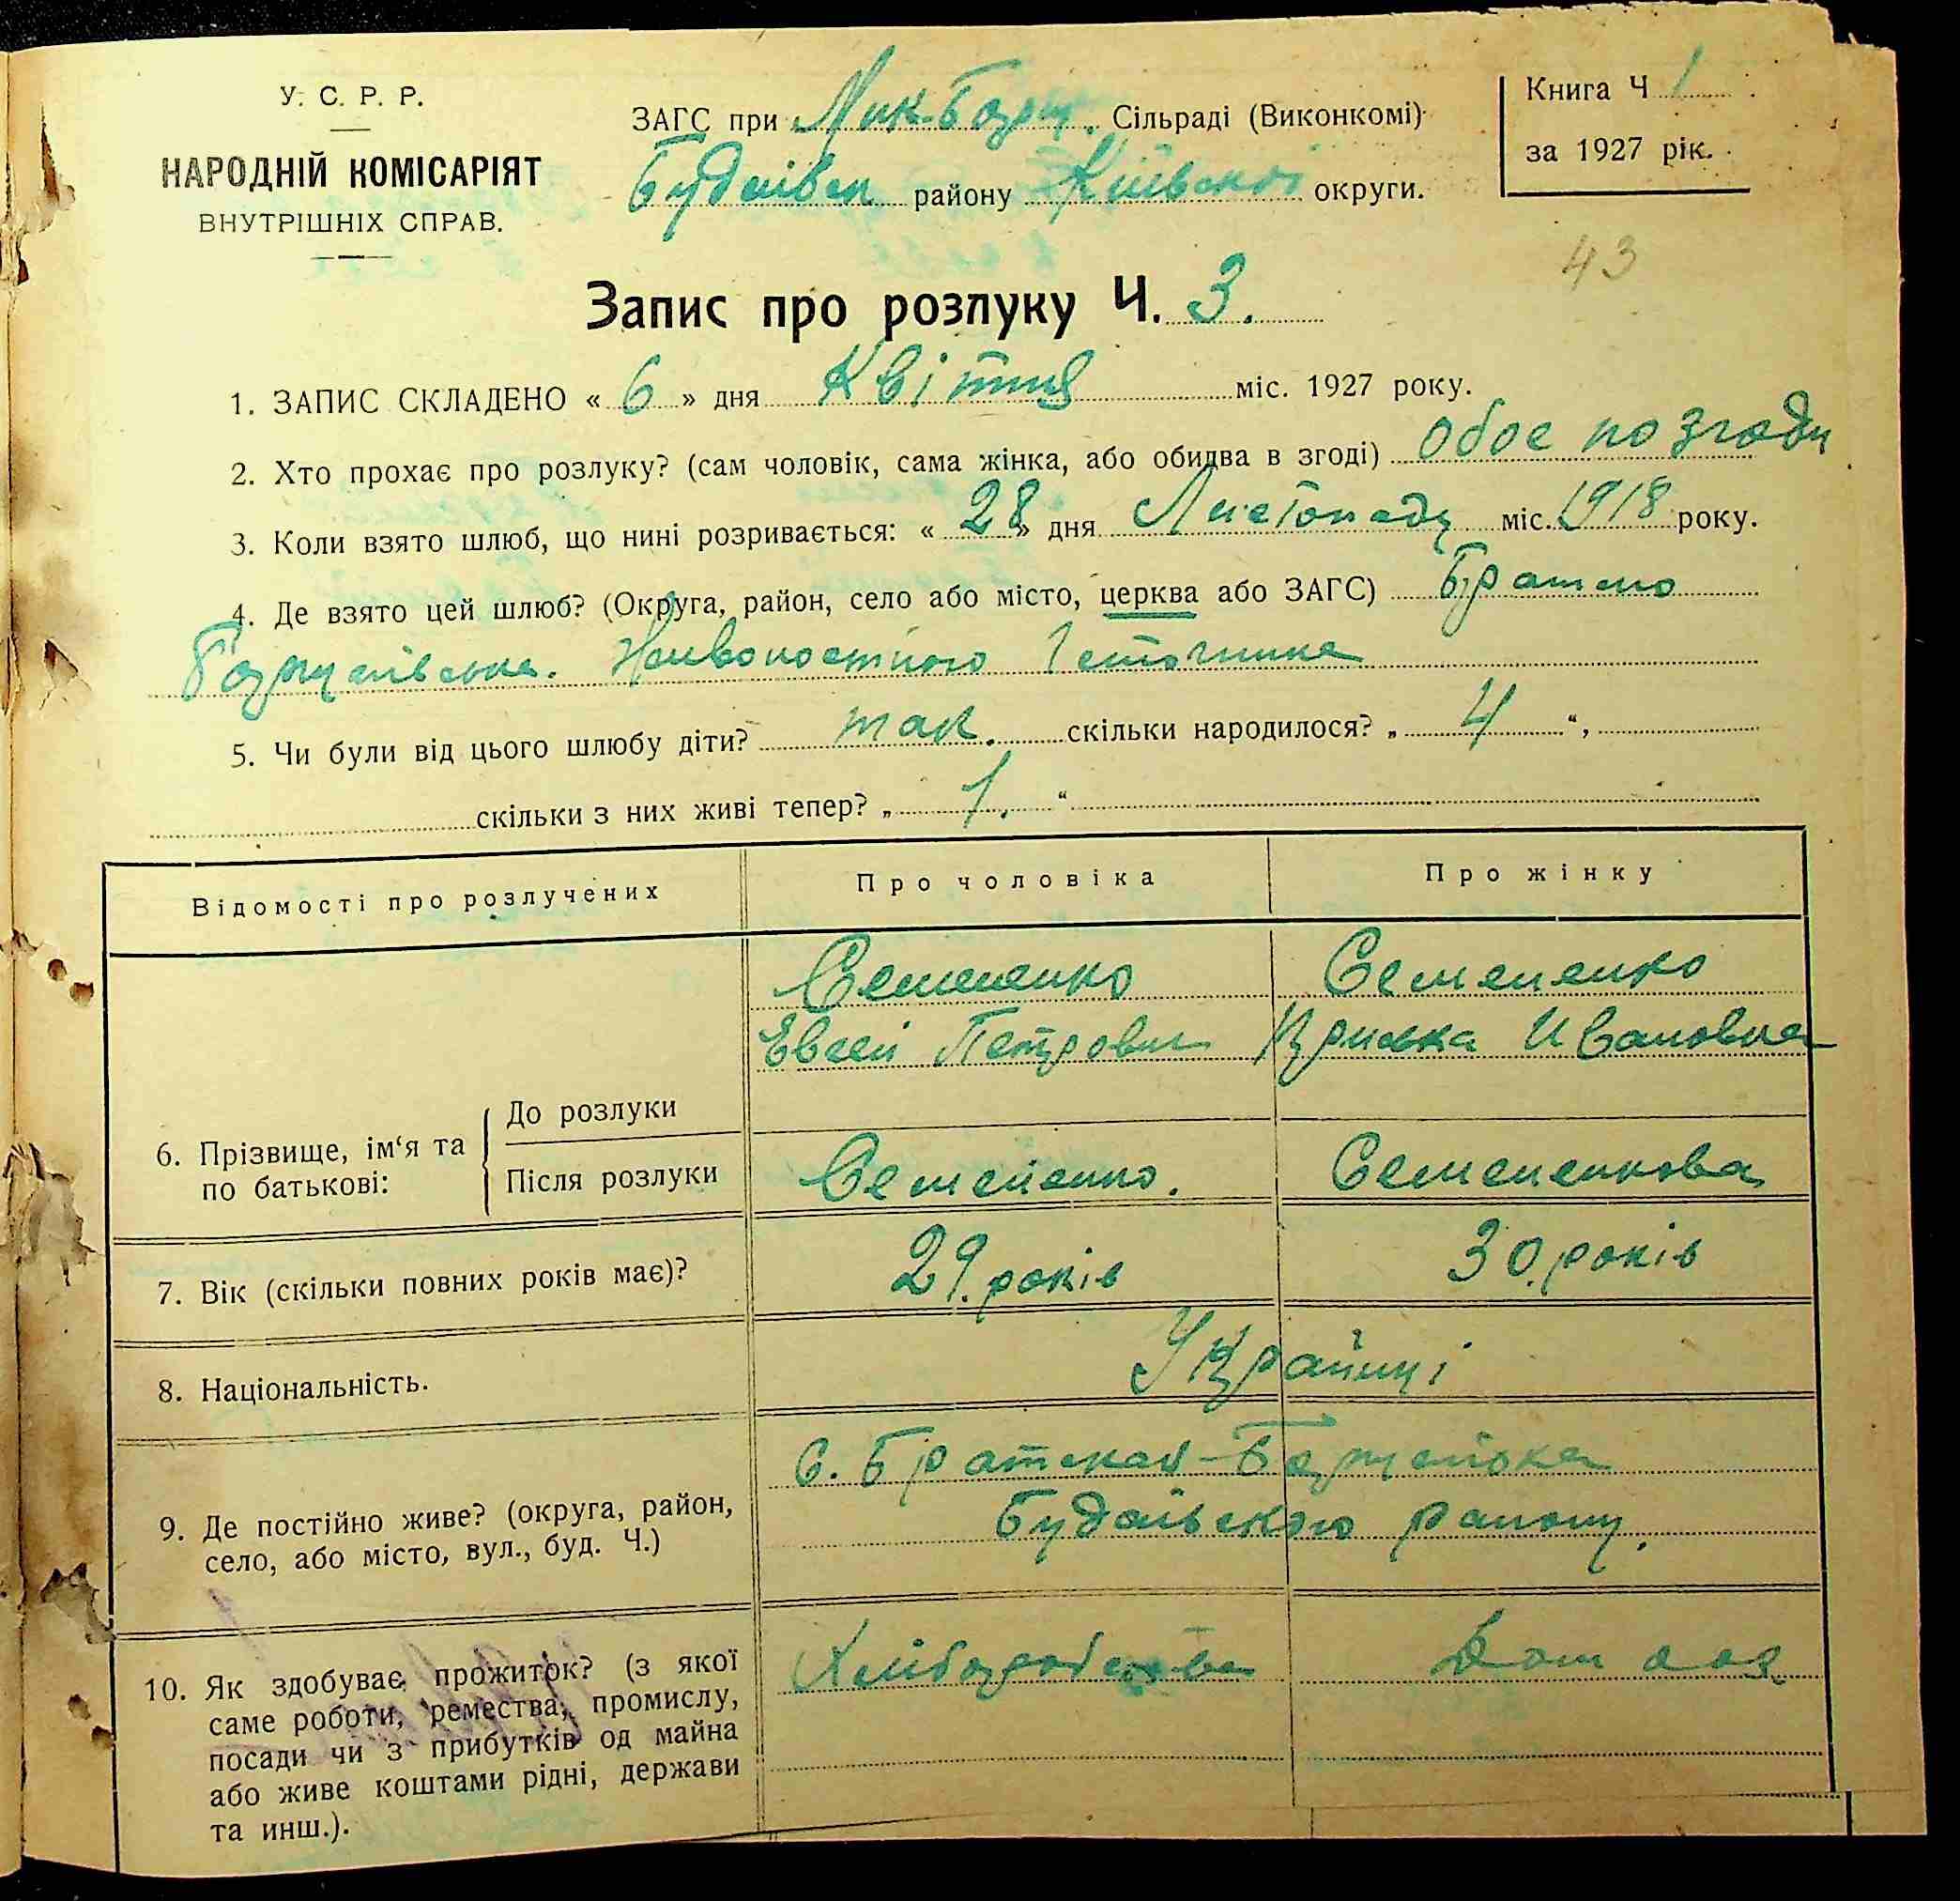 У. С. Р. Р.
НАРОДНІЙ КОМІСАРІЯТ
ВНУТРІШНІХ СПРАВ.
ЗАГС при Мик-Борщ. Сільраді (Виконкомі)
Будаївськ району Київської округи.
Книга Ч 1
за 1927 рік.
43
Запис про розлуку Ч. 3.
1. ЗАПИС СКЛАДЕНО « 6 » дня Квітня міс. 1927 року.
2. Хто прохає про розлуку? (сам чоловік, сама жінка, або обидва в згоді) обоє по згоді
3. Коли взято шлюб, що нині розривається: « 28 » дня Листопаду міс. 1918 року.
4. Де взято цей шлюб? (Округа, район, село або місто, церква або ЗАГС) Братсько
Борщагівська. Живоносного Источника
5. Чи були від цього шлюбу діти? так. скільки народилося? „ 4 “,
скільки з них живі тепер? „ 1. “
Відомості про розлучених
Про чоловіка
Про жінку
Семененко
Семененко
Евсей Петрович
Ивановна
6. Прізвище, ім‘я та по батькові:
До розлуки
Після розлуки
Семененко.
Семененкова
7. Вік (скільки повних років має)?
29. років
30. років
8. Національність.
Українці
9. Де постійно живе? (округа, район,
село, або місто, вул., буд. Ч.)
С. Братская-Борщагівка
Будаївського району.
10. Як здобуває прожиток? (з якої
саме роботи, ремества, промислу,
посади чи з прибутків од майна
або живе коштами рідні, держави
та инш.).
Хліборобство